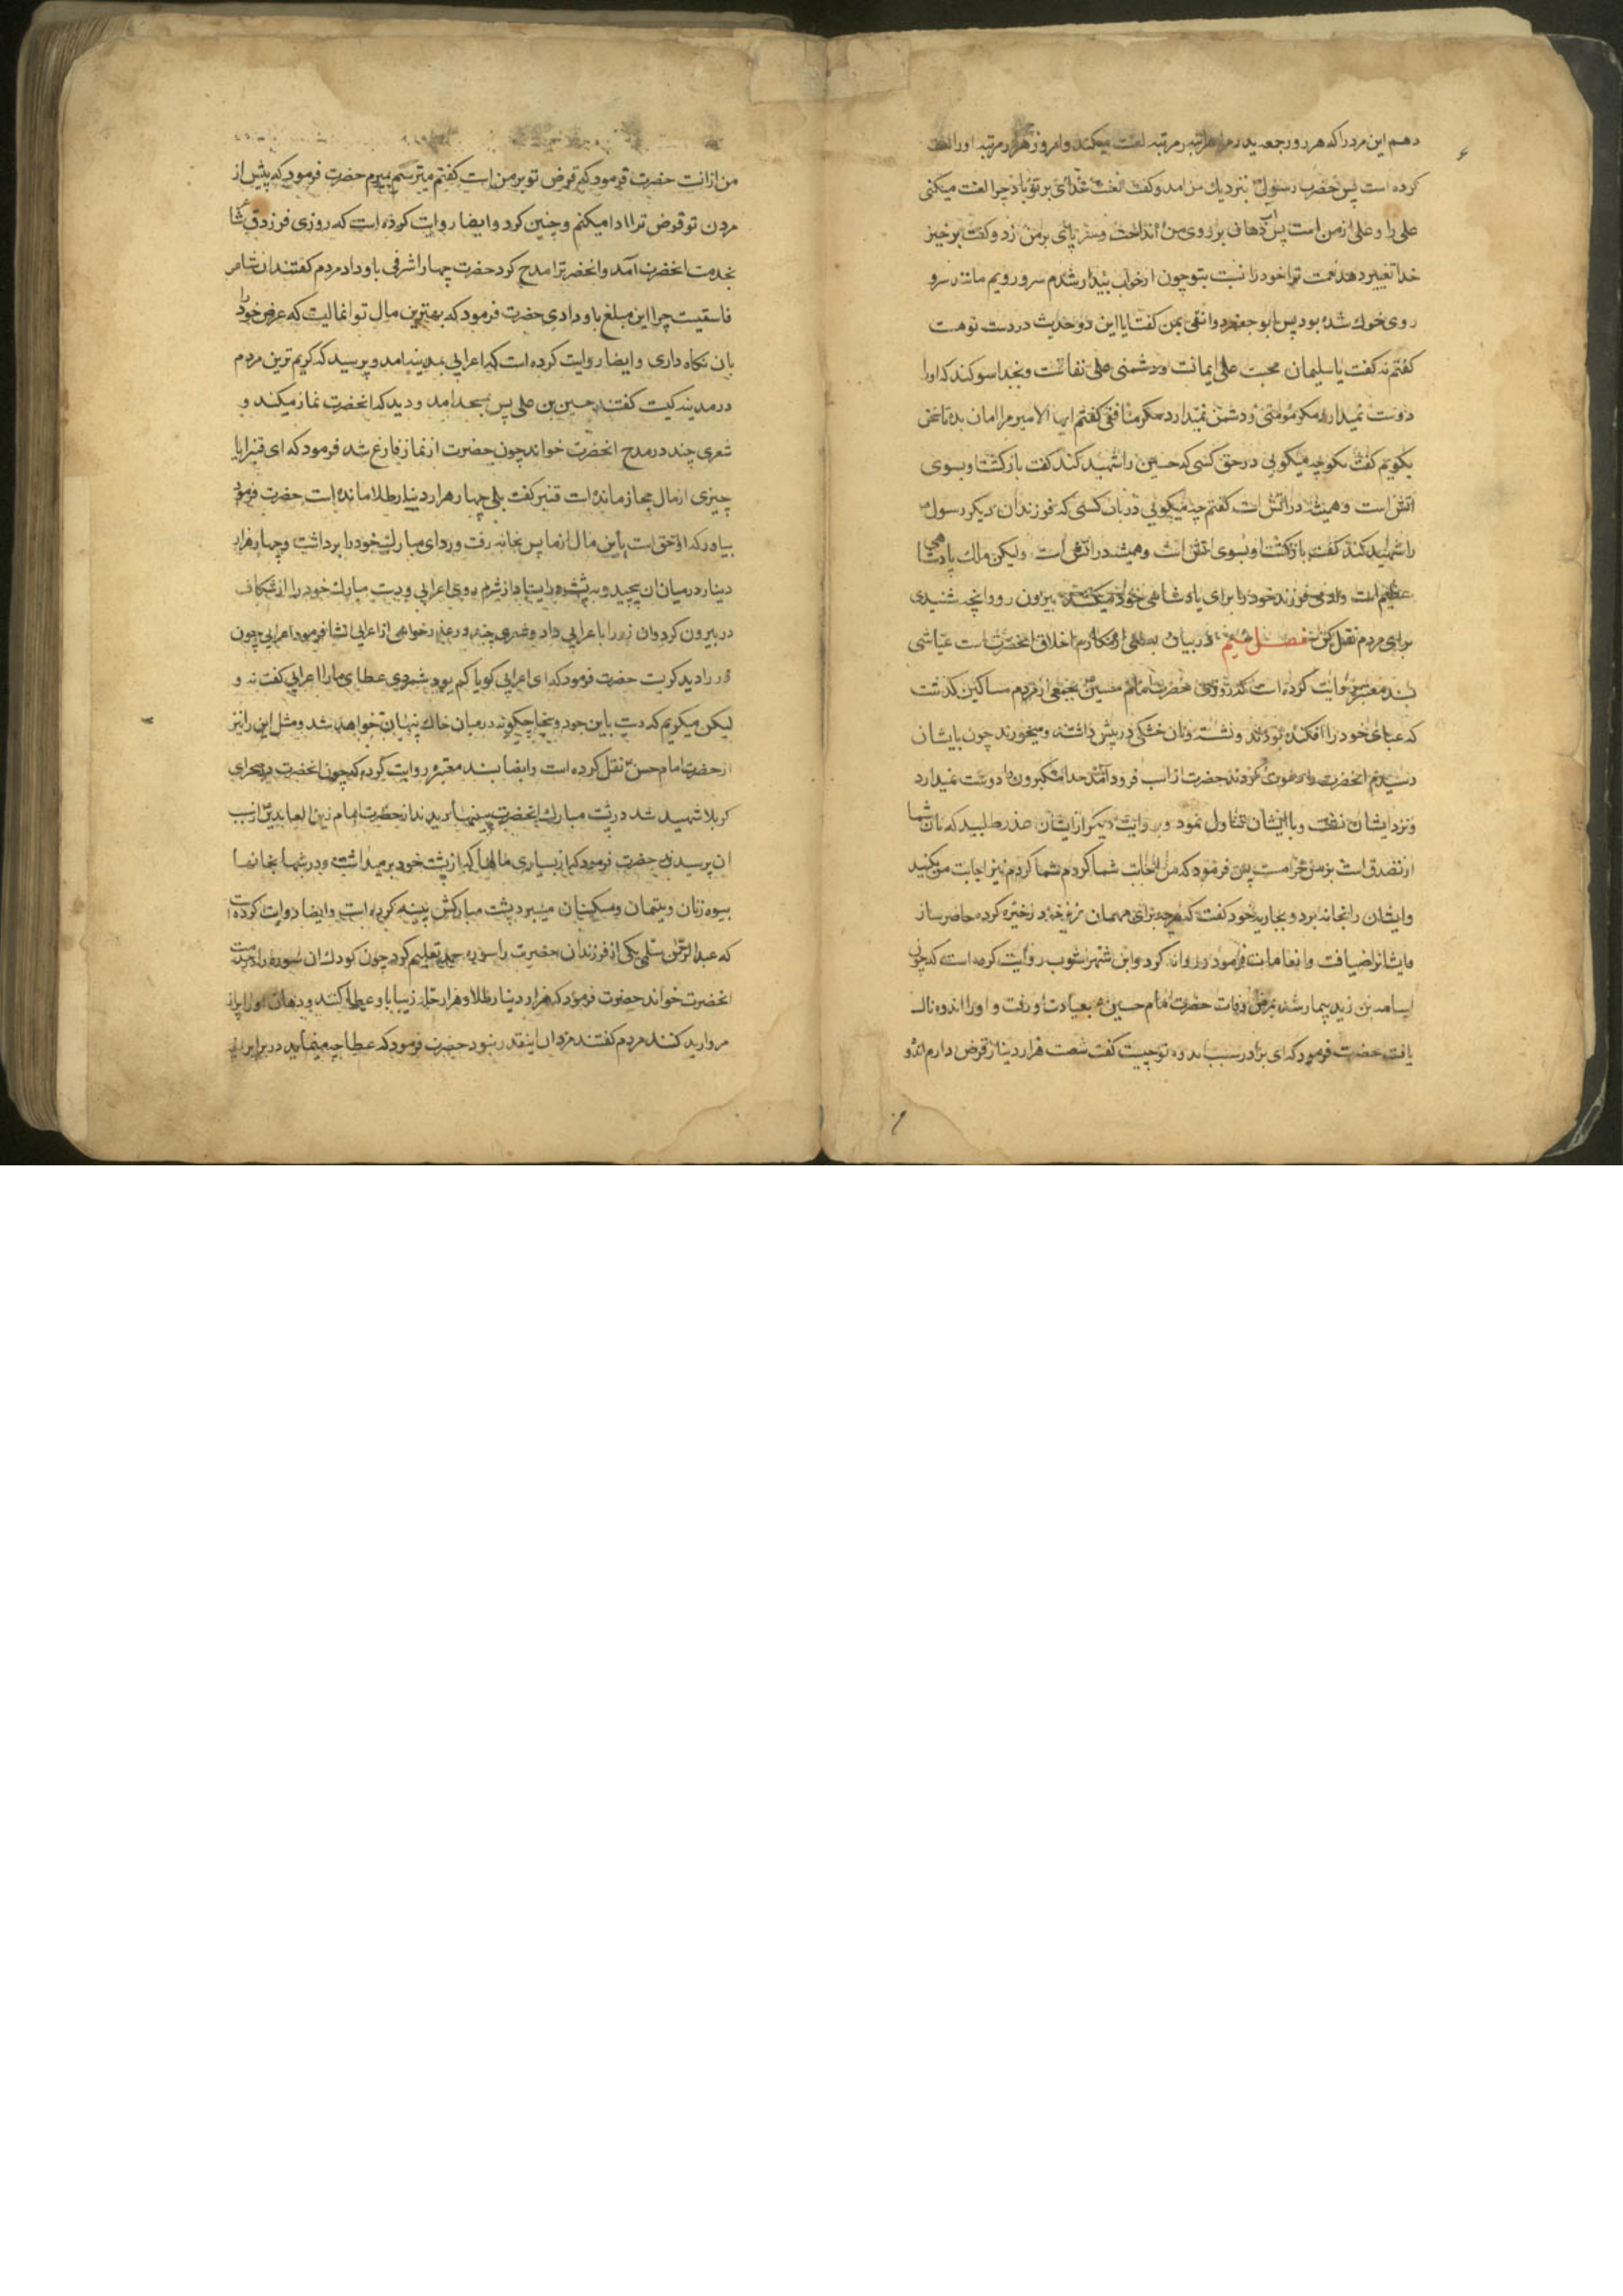 دهم این مرد را که هر روز جمعه پدرم را هزار مرتبه لعنت میکند و امروز هزار مرتبه او را لعنت
کرده است پس حضرت رسول نزدیك من امد و کفت لعنت خدای بر تو باد چرا لعنت میکنی
علی را و علی از من است پس آب دهان بر روی من انداخت و سر پای بر من زد و کفت برخیز
خدا تغییر دهد نعمت خود را نسبت بتو چون از خواب بیدار شدم سر و رویم مانند سر و
روی خوك شده بود پس ابو جعفر دوانقی بمن کفت ایا این دو حدیث در دست تو هست
کفتم نه کفت یا سلیمان محبت علی ایمانست و دشمنی علی نفاقست و بخدا سوکند که او را
دوست نمیدارد مکر مؤمنی و دشمن نمیدارد مکر منافقی کفتم ایها الامیر مرا امان بده تا سخن
بکویم کفت بکو چه میکویی در حق کسی که حسین را شهید کند کفت بازکشت او بسوی
اتش است و همیشه در اتش است کفتم چه میکویی در باب کسی که فرزندان دیکر رسول
را شهید کند کفت بازکشت او بسوی اتش است و همیشه در اتش است ولیکن ملك پادشاهی
عظیم است و ادمی فرزند خود را برای پادشاهی خود میکشد بیرون رو و انچه شنیدی
برای مردم نقل کن فصل در بیان بعضی از مکارم اخلاق انحضرت است عیاشی
بسند معتبر روایت کرده است که روزی حضرت امام حسین بجمعی از مردم مساکین کذشت
که عبای خود را افکنده بودند و نشسته و نان خشکی در پیش داشتند و میخورند چون بایشان
رسیدم انحضرت را دعوت کردند حضرت از اسب فرود آمد خدا متکبرون را دوست نمیدارد
و نزد ایشان نشست و با ایشان تناول نمود و بروایت دیکر از ایشان عذر طلبید که نان شما
از تصدق است بر من حرامست پس فرمود که من اجابت شما کردم شما کردم نیز اجابت من بکنید
و ایشان را بخانه برد و بجاریه خود کفت که هرچه برای مهمان عزیز خود ذخیره کرده حاضر ساز
و ایشانرا ضیافت و انعامات فرمود و روانه کرد و ابن شهراشوب روایت کرده است که چون
اسامه بن زید بیمار شد بمرض وفات حضرت امام حسین بعیادت او رفت و او را اندوه ناك
یافت حضرت فرمود که ای برادر سبب اندوه تو چیست کفت شصت هزار دینار قرض دارم اندوه
من ازانست حضرت فرمود که قرض تو بر من است کفتم میترسم بمیرم حضرت فرمود که پیش از
مردن تو قرض ترا ادا میکنم و چنین کرد و ایضا روایت کرده است که روزی فرزدق شاعر
بخدمت انحضرت آمد و انحضرترا مدح کرد حضرت چهار اشرفی باو داد مردم کفتند ان شاعر
فاسقیست چرا این مبلغ باو دادی حضرت فرمود که بهترین مال تو انمالیست که عرض خود را
بان نکاه داری و ایضا روایت کرده است که اعرابی بمدینه امد و پرسید که کریم ترین مردم
در مدینه کیست کفتند حسین بن علی پس بمسجد امد و دید که انحضرت نماز میکند و
شعری چند در مدح انحضرت خواند چون حضرت از نماز فارغ شد فرمود که ای قنبر ایا
چیزی از مال حجاز مانده است قنبر کفت بلی چهار هزار دینار طلا مانده است حضرت فرمود
بیاور که او احق است باین مال از ما پس بخانه رفت و ردای مبارك خود را برداشت و چهار هزار
دینار در میان ان پیچید و به پشت در ایستاد از شرم روی اعرابی و دست مبارك خود را از شکاف
در بیرون کرد و ان زر را باعرابی داد و شعری چند در عذر خواهی از اعرابی انشا فرمود اعرابی چون
زر را دید کریست حضرت فرمود که ای اعرابی کویا کم بود شمردی عطای ما را اعرابی کفت نه و
لیکن میکریم که دست باین جود و سخا چکونه در میان خاك پنهان خواهد شد و مثل این را نیز
از حضرت امام حسن نقل کرده است و ایضا بسند معتبر روایت کرده که چون انحضرت در صحرای
کربلا شهید شد در پشت مبارك انحضرت پینها دیدند از حضرت امام زین العابدین از سبب
ان پرسیدند حضرت فرمود که از بسیاری مالها که از پشت خود بر میداشت و در شبها بخانها
بیوه زنان و یتیمان و مسکینان میبرد پشت مبارکش پینه کرده است و ایضا روایت کرده است
که عبدالرحمن سلمی یکی از فرزندان حضرت را سوره حمد تعلیم کرد چون کودك ان سوره را در خدمت
انحضرت خواند حضرت فرمود که هزار دینار طلا و هزار حله زیبا باو عطا کنند و دهان او را پر از
مروارید کنند مردم کفتند مزد ان اینقدر نبود حضرت فرمود که عطا چه مینماید در برابر ان